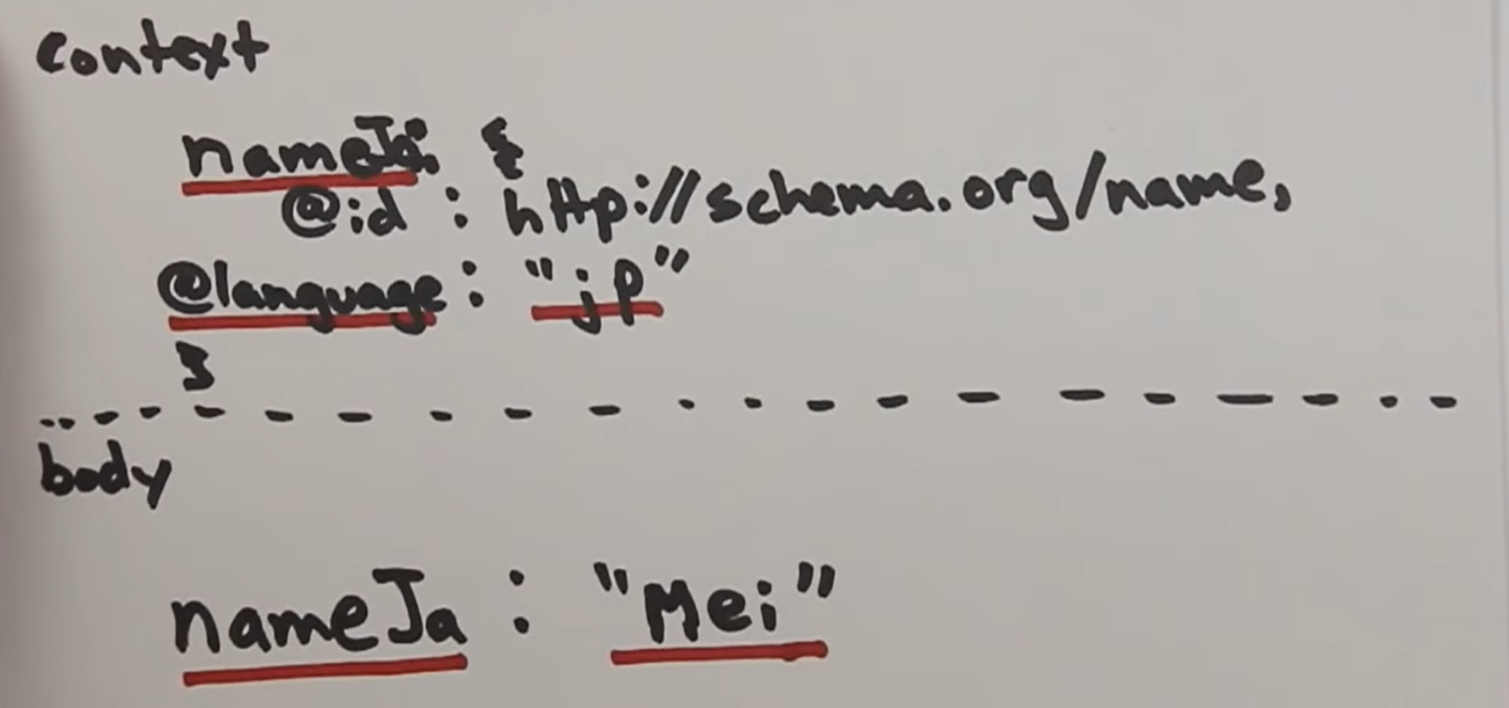 context
nameJa: {
@id : http://schema.org/name,
@language : "jp"
}
body
nameJa : "Mei"